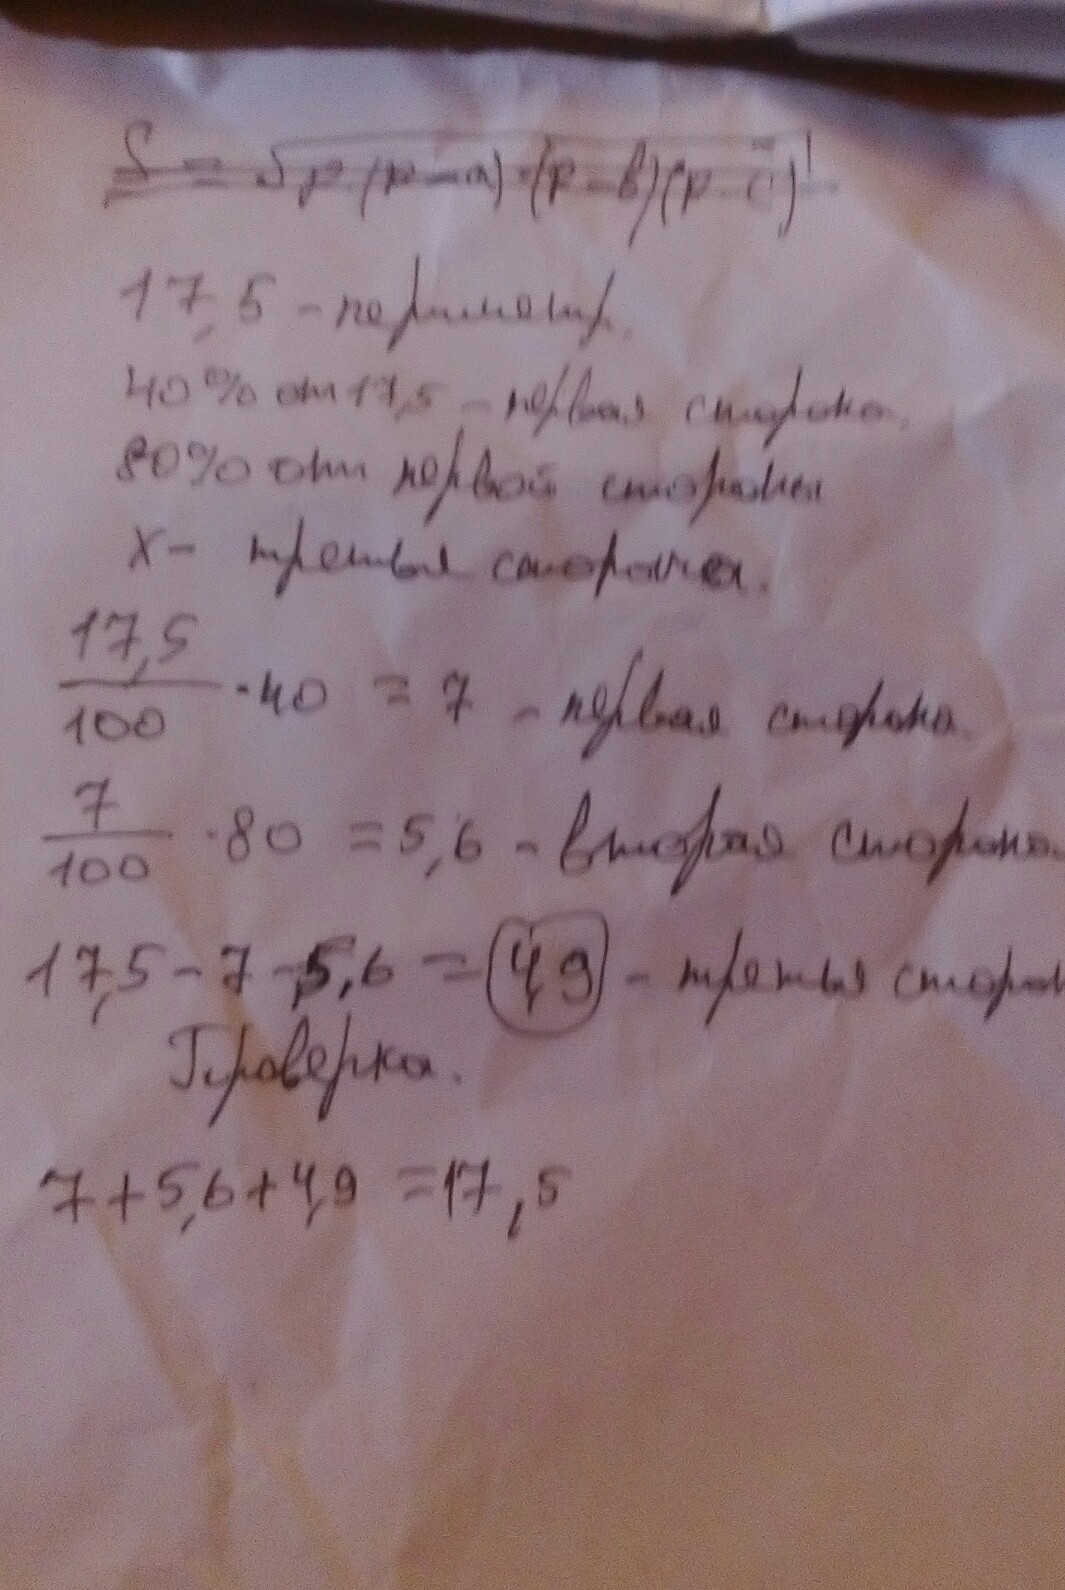 S = √p(p-a)·(p-b)(p-c)
17,5 - периметр.
40% от 17,5 - первая сторона.
80% от первой стороны
x - третья сторона.
17,5/100 · 40 = 7 - первая сторона.
7/100 · 80 = 5,6 - вторая сторона.
17,5 - 7 - 5,6 = 4,9 - третья сторон
Проверка.
7 + 5,6 + 4,9 = 17,5